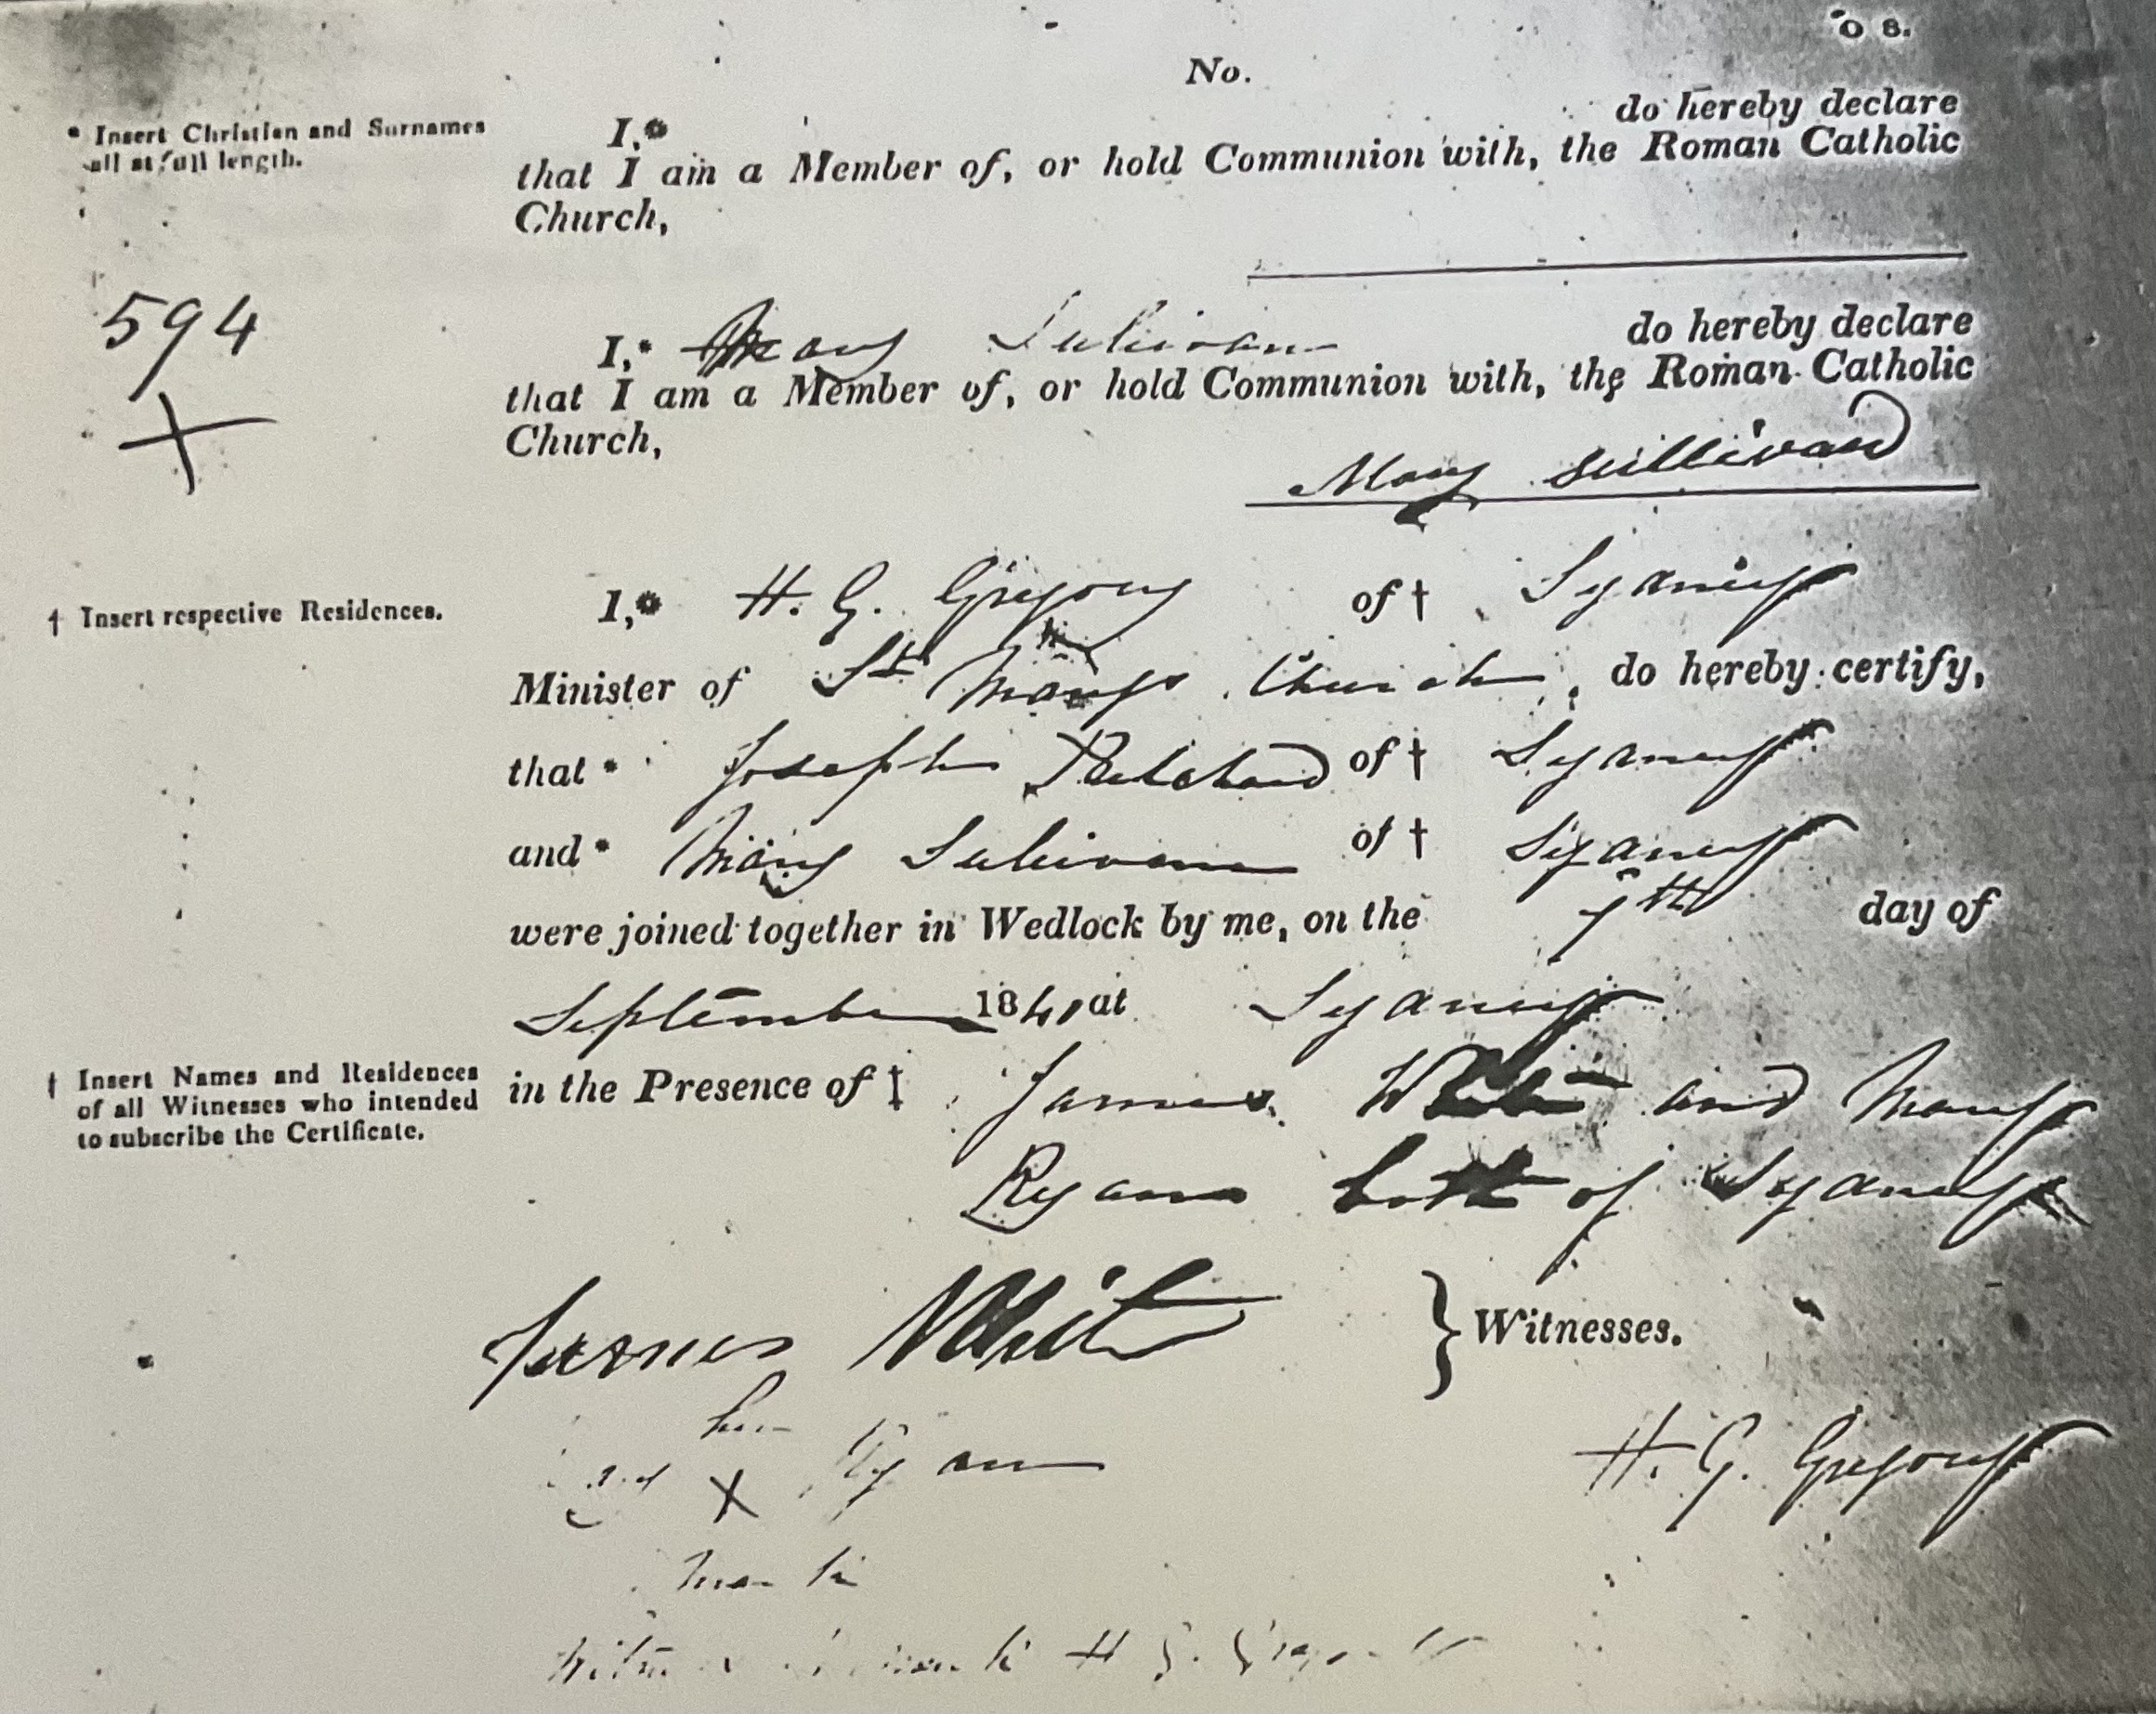 o 8.
No.
* Insert Christian and Surnames
all at full length.
I,* do hereby declare
that I am a Member of, or hold Communion with, the Roman Catholic
Church,
594
X
I,* Mary Sulivan do hereby declare
that I am a Member of, or hold Communion with, the Roman Catholic
Church,
Mary Sullivan
† Insert respective Residences.
I,* H. G. Gregory of † Sydney
Minister of St Mary's Church, do hereby certify,
that * Joseph of † Sydney
and * Mary Sulivan of † Sydney
were joined together in Wedlock by me, on the 7th day of
September 1841 at Sydney
‡ Insert Names and Residences
of all Witnesses who intended
to subscribe the Certificate.
in the Presence of ‡ James White and Mary
Ryan both of Sydney
James White
} Witnesses.
her
X Ryan
mark
H. G. Gregory
Witness mark H. G. Gregory